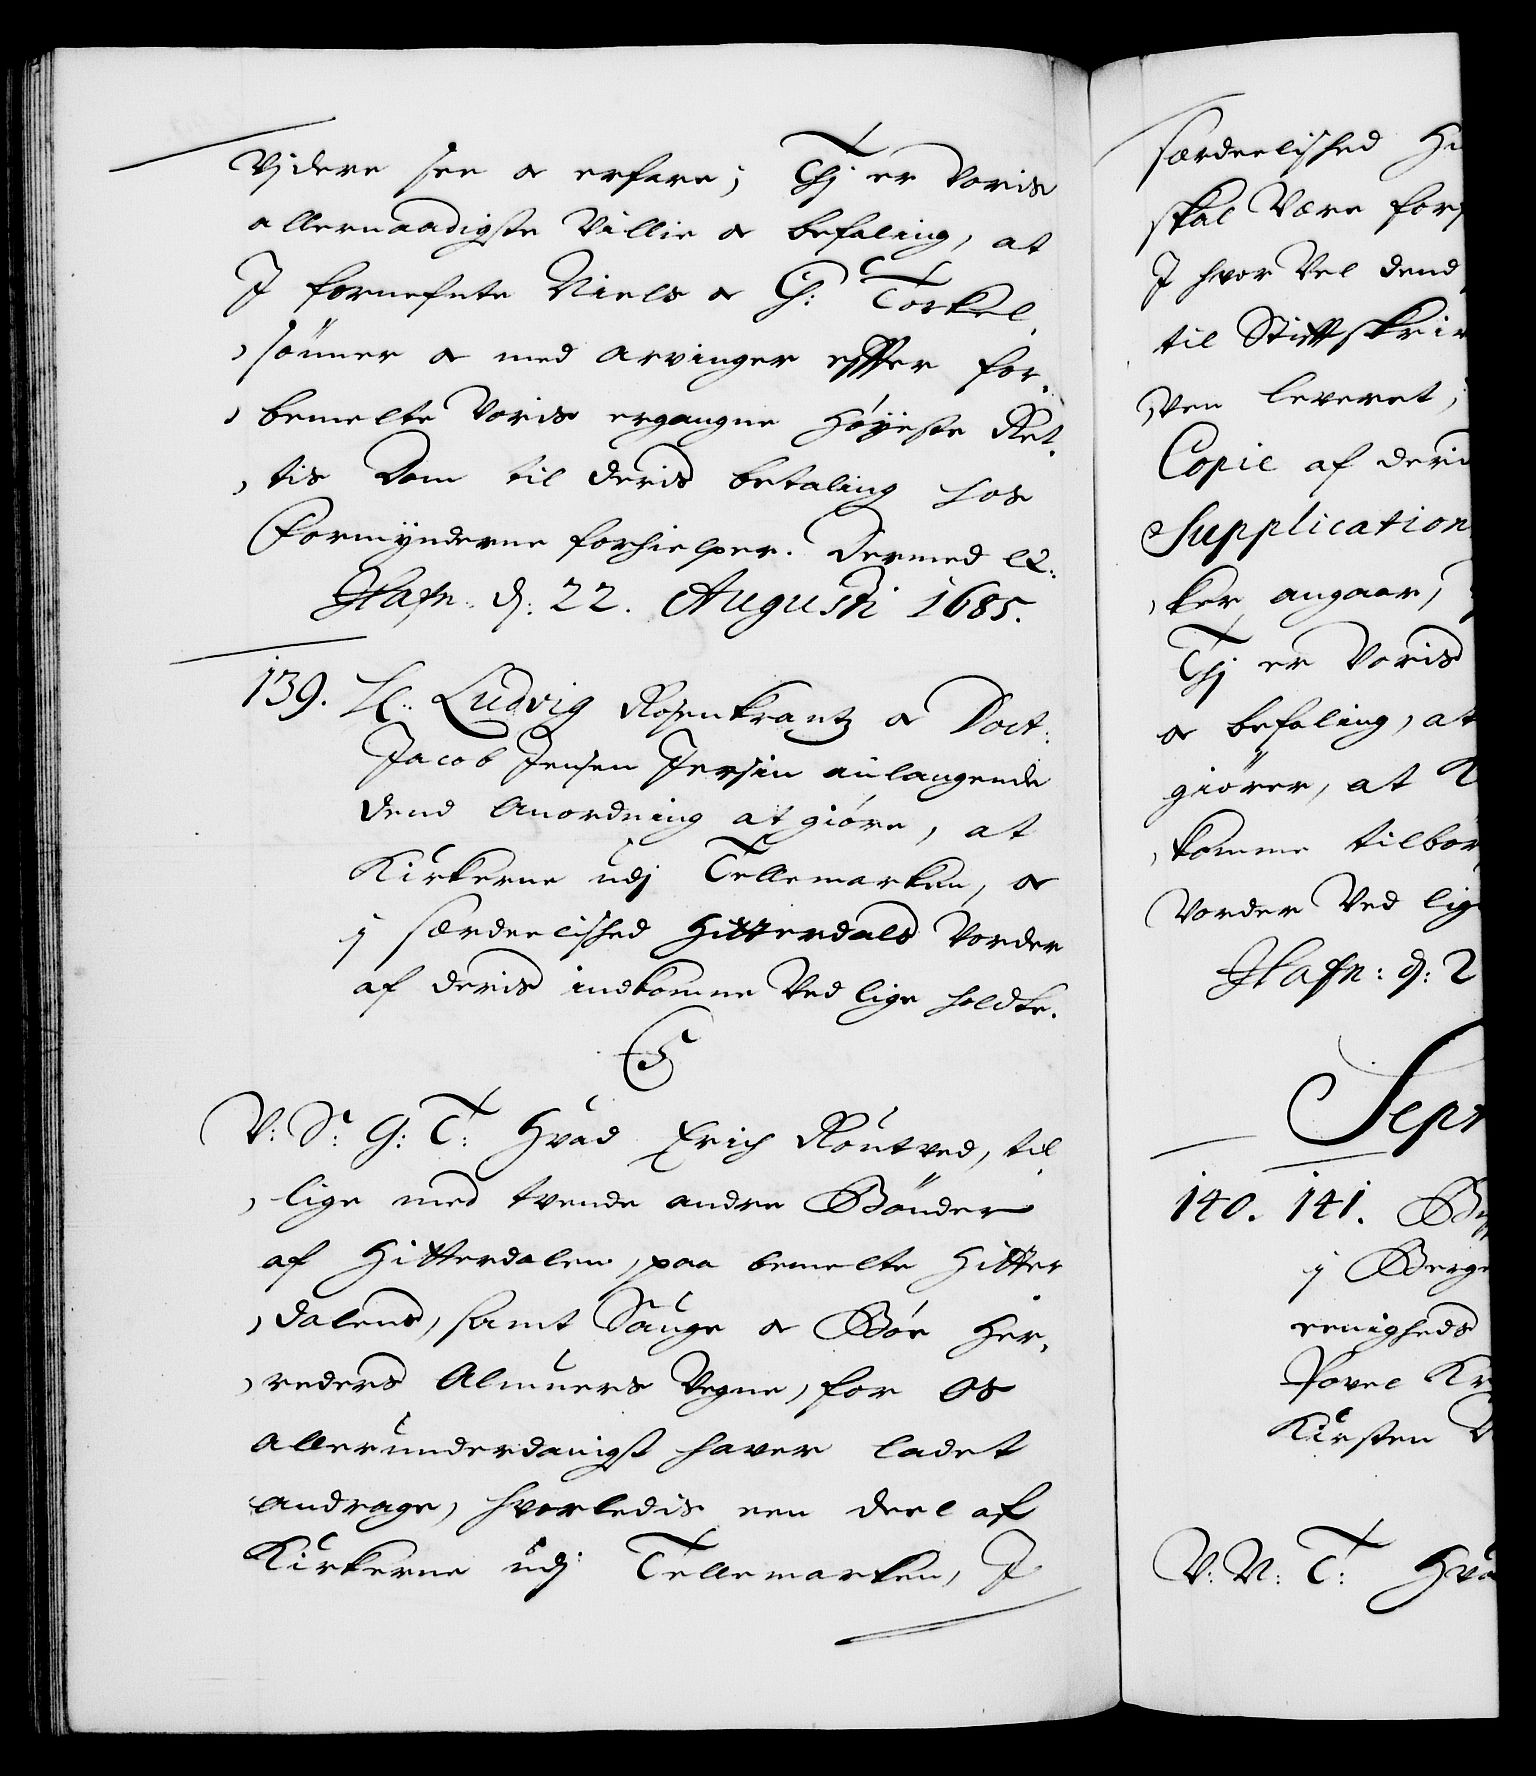 Vjdere see oc erfare; Thj er Voris
allernaadigste Villie oc befaling, at
J fornefnte Niels oc Ch: Torkel,
,sönner oc med arvinger effter for,
,bemelte Voris ergangne Höyeste Ret,
,tis Dom til deris betaling hos
Formynderne forhielper. Dermed etc:
Hafn: d: 22. Augusti 1685.
139. H: Ludvig Rosenkrantz oc Doct:
Jacob Jensen Jersin anlangende
dend Anordning at giöre, at
Kirkerne udj Tellemarken, oc
j særdeelished Hitterdals Vorder
af deris indkomne Ved lige holdte.
C5
V: S: G: T: Hvad Erich Röntved, til,
,lige med tvende andre Bönder
af Hitterdalen, paa bemelte Hitter
,dalens, samt Sauge oc Böe Her,
,reders Almuers Vegne, for Os
allerunderdanigst haver ladet
andrage, hvorledis een deel af
Kirkerne udj Tellemarken, J
særdeelished Hi
skal Være fors
J hvor Vel dend
til Stifftskriv
,ven leveret,
Copie af deris
Supplication
,ker angaar,
Thj er Voris
oc befaling, at
giörer, at K
,komme tilbör
Vorder Ved lig
Hafn: d: 2
Sept
140. 141. B
j Berge
eenigheds
Povel Kr
Kirsten
V: N: T: Hva